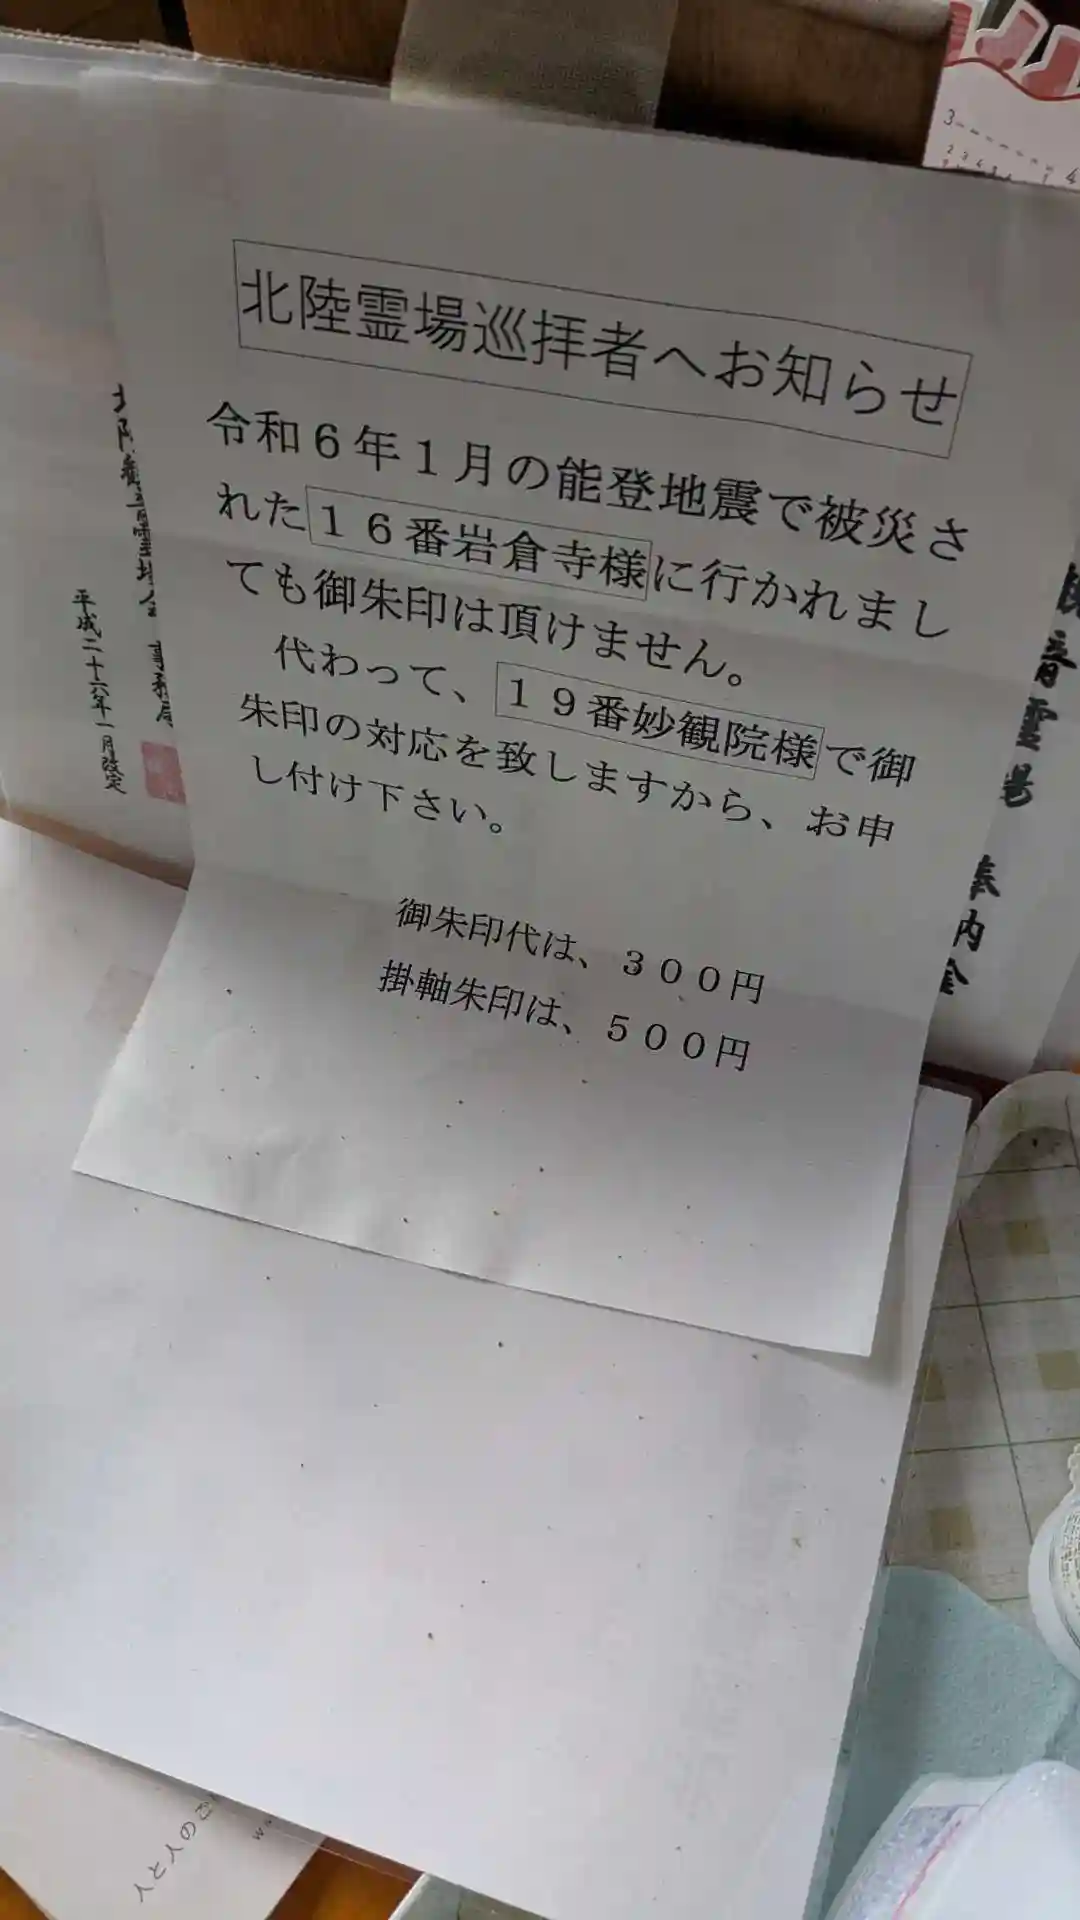 北陸霊場巡拝者へお知らせ
令和6年1月の能登地震で被災さ
れた16番岩倉寺様に行かれまし
ても御朱印は頂けません。
代わって、19番妙観院様で御
朱印の対応を致しますから、お申
し付け下さい。
御朱印代は、300円
掛軸朱印は、500円
音霊場 奉納金
事務局
平成二十六年一月改定
人と人の